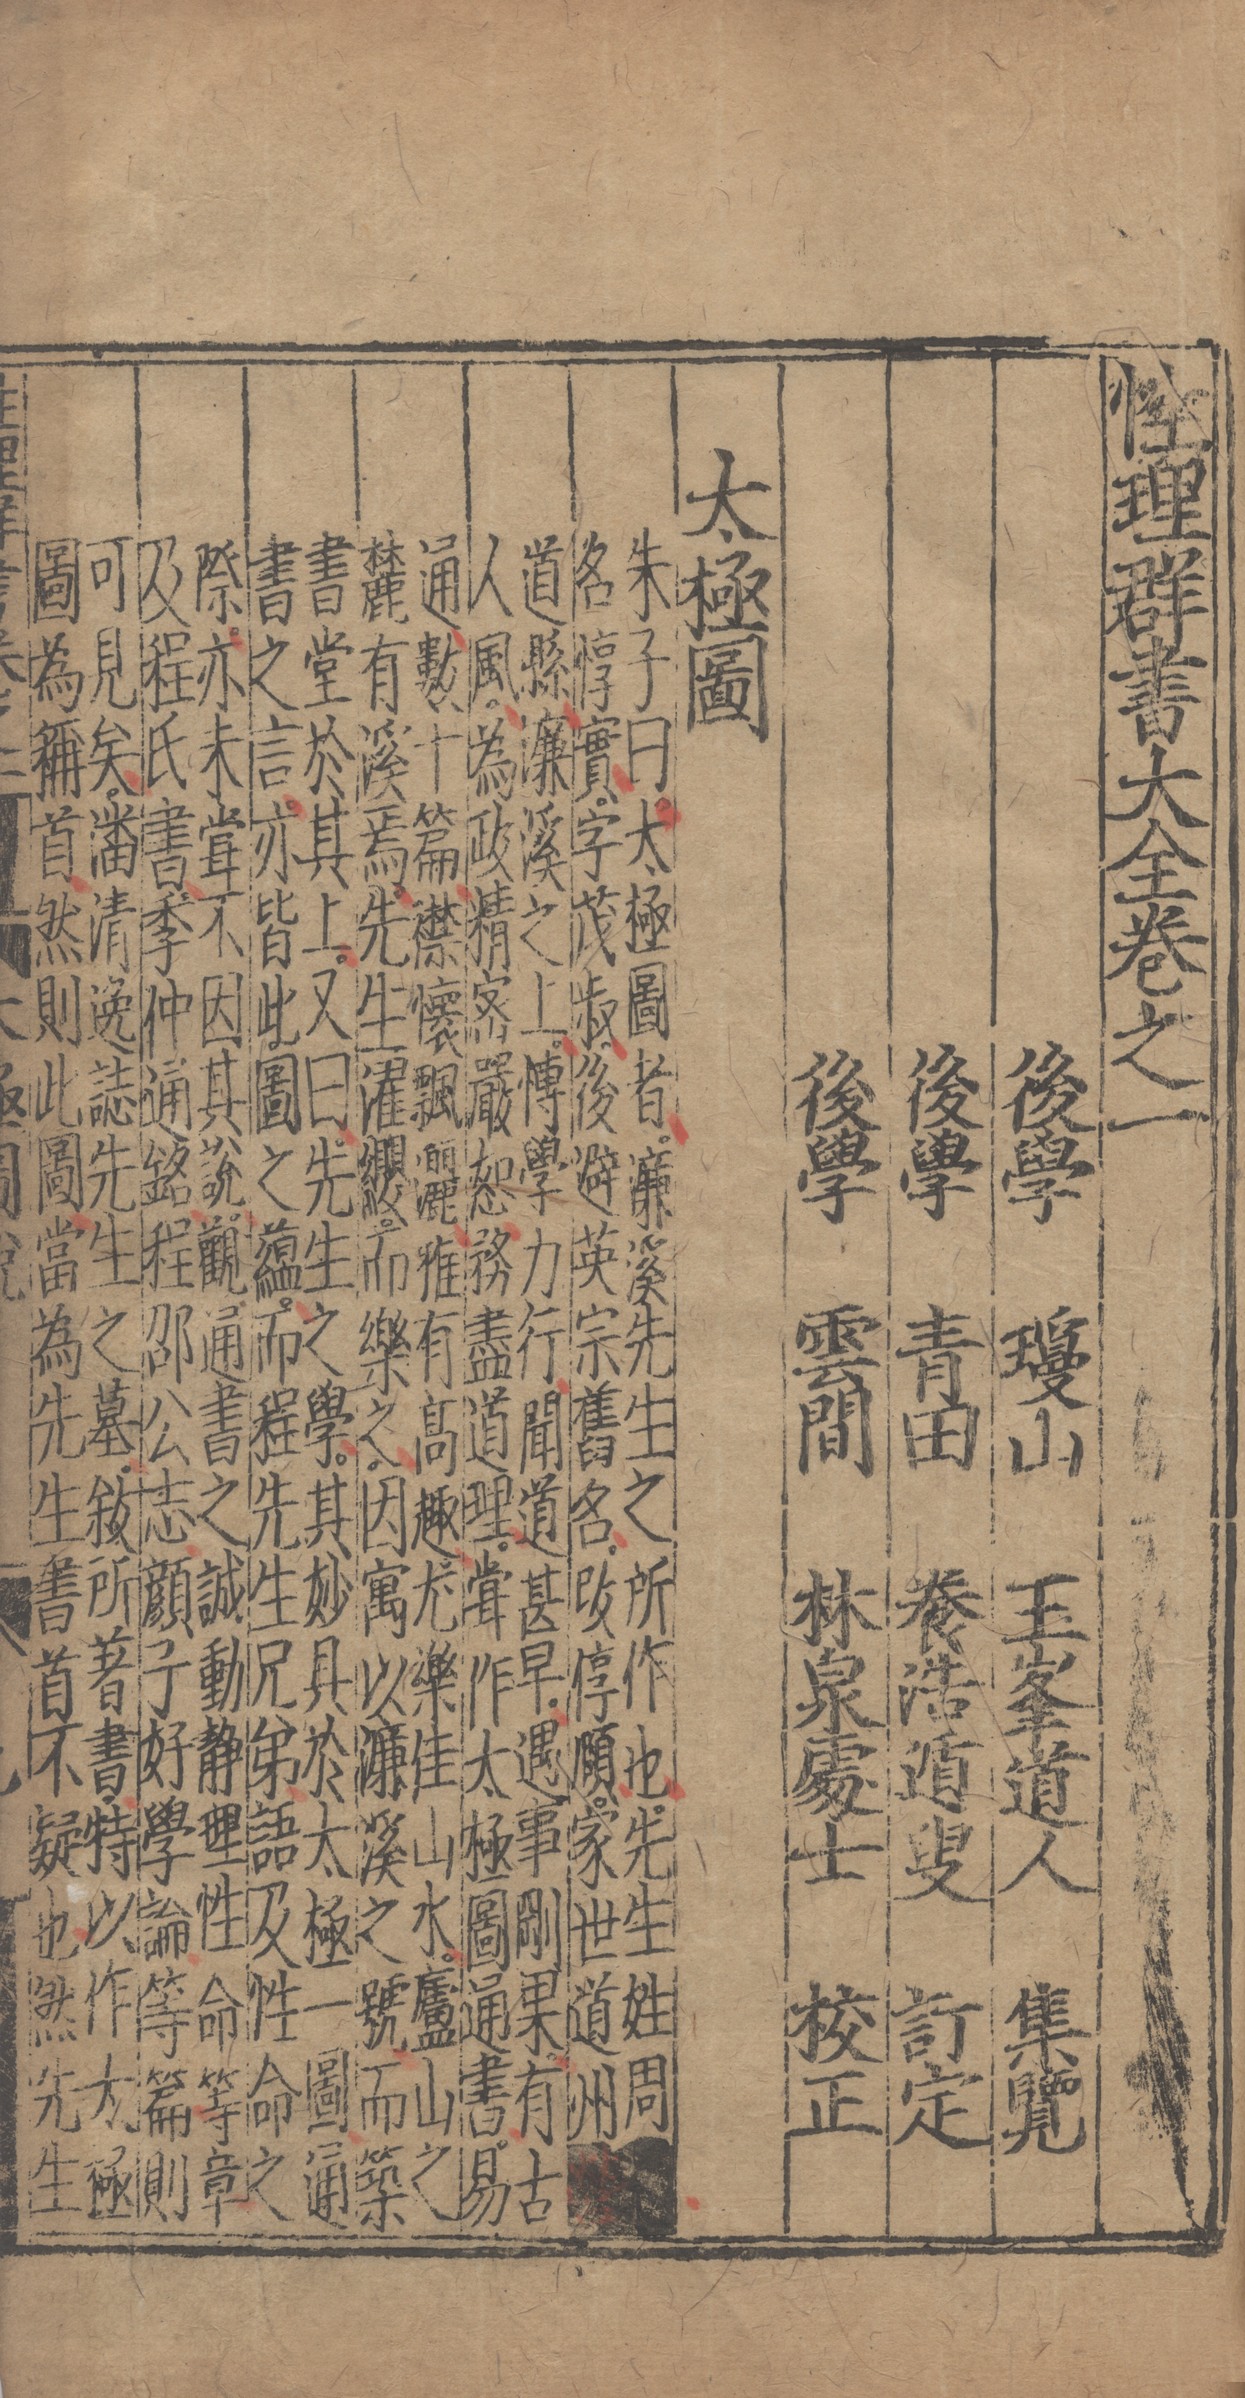 性理群書大全卷之一
後學 瓊山 玉峯道人 集覽
後學 青田 養浩遁叟 訂定
後學 雲間 林泉處士 校正
太極圖
朱子曰太極圖者濂溪先生之所作也先生姓周
名惇實字茂叔後避英宗舊名改惇頤家世道州
道縣濂溪之上博學力行聞道甚早遇事剛果有古
人風為政精密嚴恕務盡道理嘗作太極圖通書易
通數十篇襟懷飄灑雅有高趣尤樂佳山水廬山之
麓有溪焉先生濯纓而樂之因寓以濂溪之號而築
書堂於其上又曰先生之學其妙具於太極一圖通
書之言亦皆此圖之蘊而程先生兄弟語及性命之
際亦未嘗不因其說觀通書之誠動静理性命等章
及程氏書李仲通銘程邵公志顔子好學論等篇則
可見矣潘清逸誌先生之墓敍所著書特以作太極
圖為稱首然則此圖當為先生書首不疑也然先生